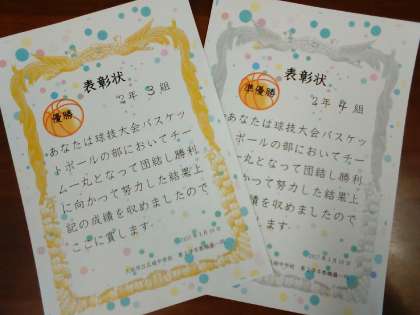 表彰状
優勝
2年 3組
あなたは球技大会バスケッ
トボールの部においてチー
ム一丸となって団結し勝利
に向かって努力した結果上
記の成績を収めましたので
ここに賞します
表彰状
準優勝
2年 4組
あなたは球技大会バスケッ
トボールの部においてチー
ム一丸となって団結し勝利
に向かって努力した結果上
記の成績を収めましたので
ここに賞します